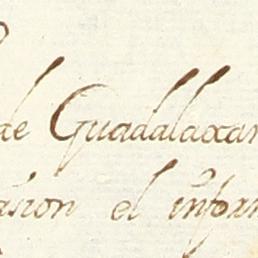 de Guadalaxar
asion el infor